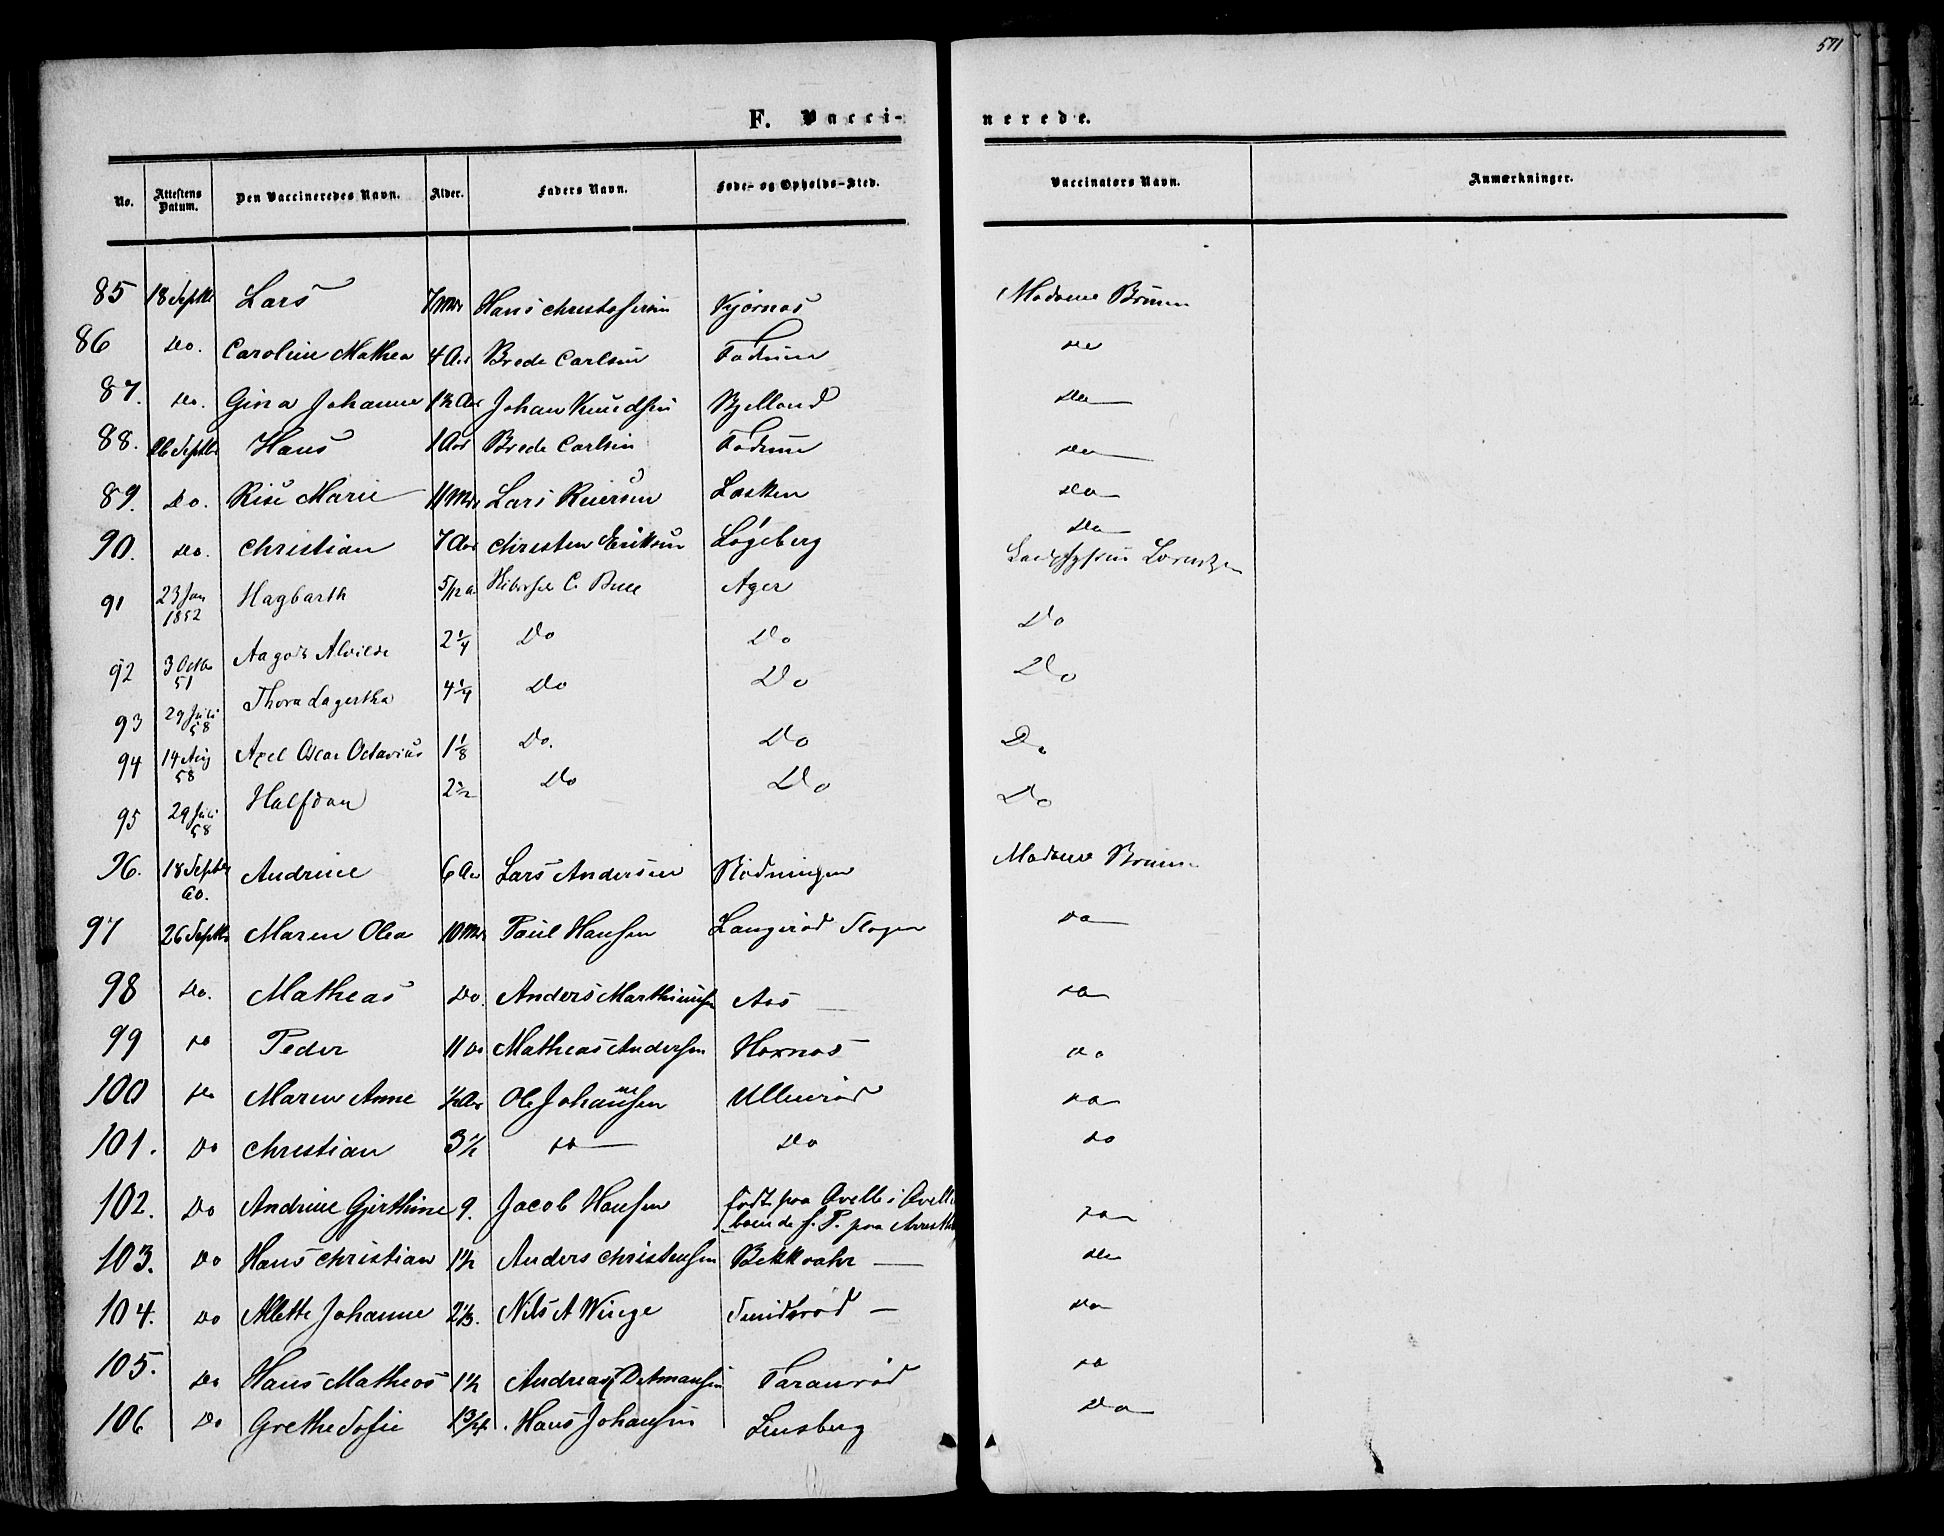 571
F. Vacci-nerede.
No. Attestens Datum. Den Vaccineredes Navn. Alder. Faders Navn. Føde- og Opholds-Sted. Vaccinators Navn. Anmærkninger.
85 18 Septbr Lars 7 Mdr Hans Christofersen Kjærnæs Madame Bruun
86 Do. Caroline Mathea 4 Aar Brede Carlsen Fadum do
87. Do. Gina Johanne 1½ Aar Johan Knudsen Bjelland do
88. 26 Septbr Hans 1 Aar Brede Carlsen Fadum do
89. Do. Rise Marie 11 Mdr Lars Reiersen Løkken do
90. Do. Christian 7 Aar Christen Eriksen Løgeberg do
91 23 Jan 1852 Hagbarth 5/12 a C. Bull Ager Lorentzen
92 3 Octbr 51 Aagoth Alvilde 2¼ Do Do Do
93 29 Juli 58 Thora Lagertha 4¼ Do Do Do
94 14 Aug 58 Axel Oscar Octavius 1⅛ Do. Do Do
95 29 Juli 58 Halfdan 2½ Do Do Do
96. 18 Septbr 60. Andrine 6 Aar Lars Andersen Rødningen Madame Bruun
97 26 Septbr Maren Olea 10 Mdr Paul Hansen Langerød Slagen do
98 Do. Matheas Do. Anders Marthinusen Aas do
99 do Peder 11 Do Matheas Andersen Hoxnæs do
100 Do Maren Anne ½ Aar Ole Johannesen Ullenrød do
101. Do Christian 3½ do Do do
102. Do Andrine Gjerthine 9. Jacob Hansen født paa Qvelle i Qvelle
boende f. T. paa do
103. Do Hans Christian 1½ Anders Christensen Bekkevahr do
104. Do Alette Johanne 2⅓. Nils A Winge Sundsrød do
105. Do Hans Matheas 1½ Andreas Ditmansen Faranrød do
106 Do Grethe Sofie 1¾ Hans Johansen Linsberg Do